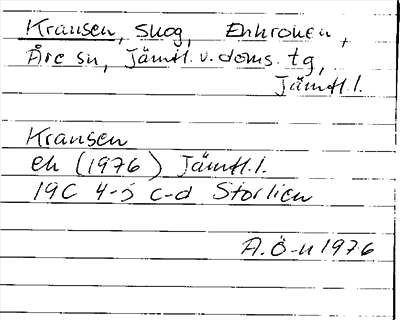 Kransen, skog, Enkronen,
Åre sn, Jämtl. v. doms. tg,
Jämtl. l.
Kransen
ek (1976) Jämtl. l.
19C 4-5 c-d Storlien
A.Ö-n 1976